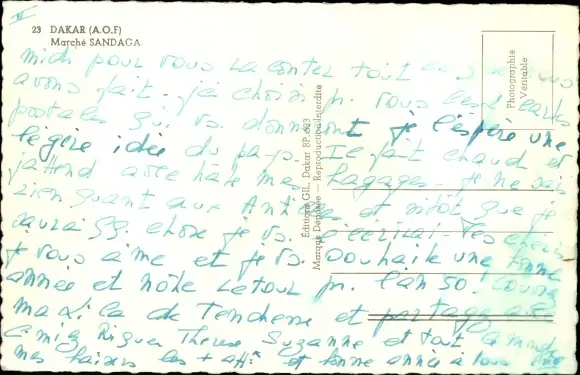 23 DAKAR (A.O.F)
Marché SANDAGA.
Photographie
Véritable
Editions GIL, Dakar BP. 693
Marque Déposée — Reproduction Interdite
midi pour vous raconter tout nous
avons fait. j'ai choisi pr. vous les cartes
postales qui vs. donneront je l'espère une
légère idée du pays. Il fait chaud et
j'attend avec hâte mes bagages. Je ne sais
rien quant aux et sitôt que je
saurai qq chose je vs. l'écrirai. Mes chers
je vous aime et je vs. souhaite une bonne
année et notre retour pr. l'an 50.
de tendresse et partagez avec
Thérèse Suzanne et tout le monde
mes baisers les + aff. et bonne année à tous